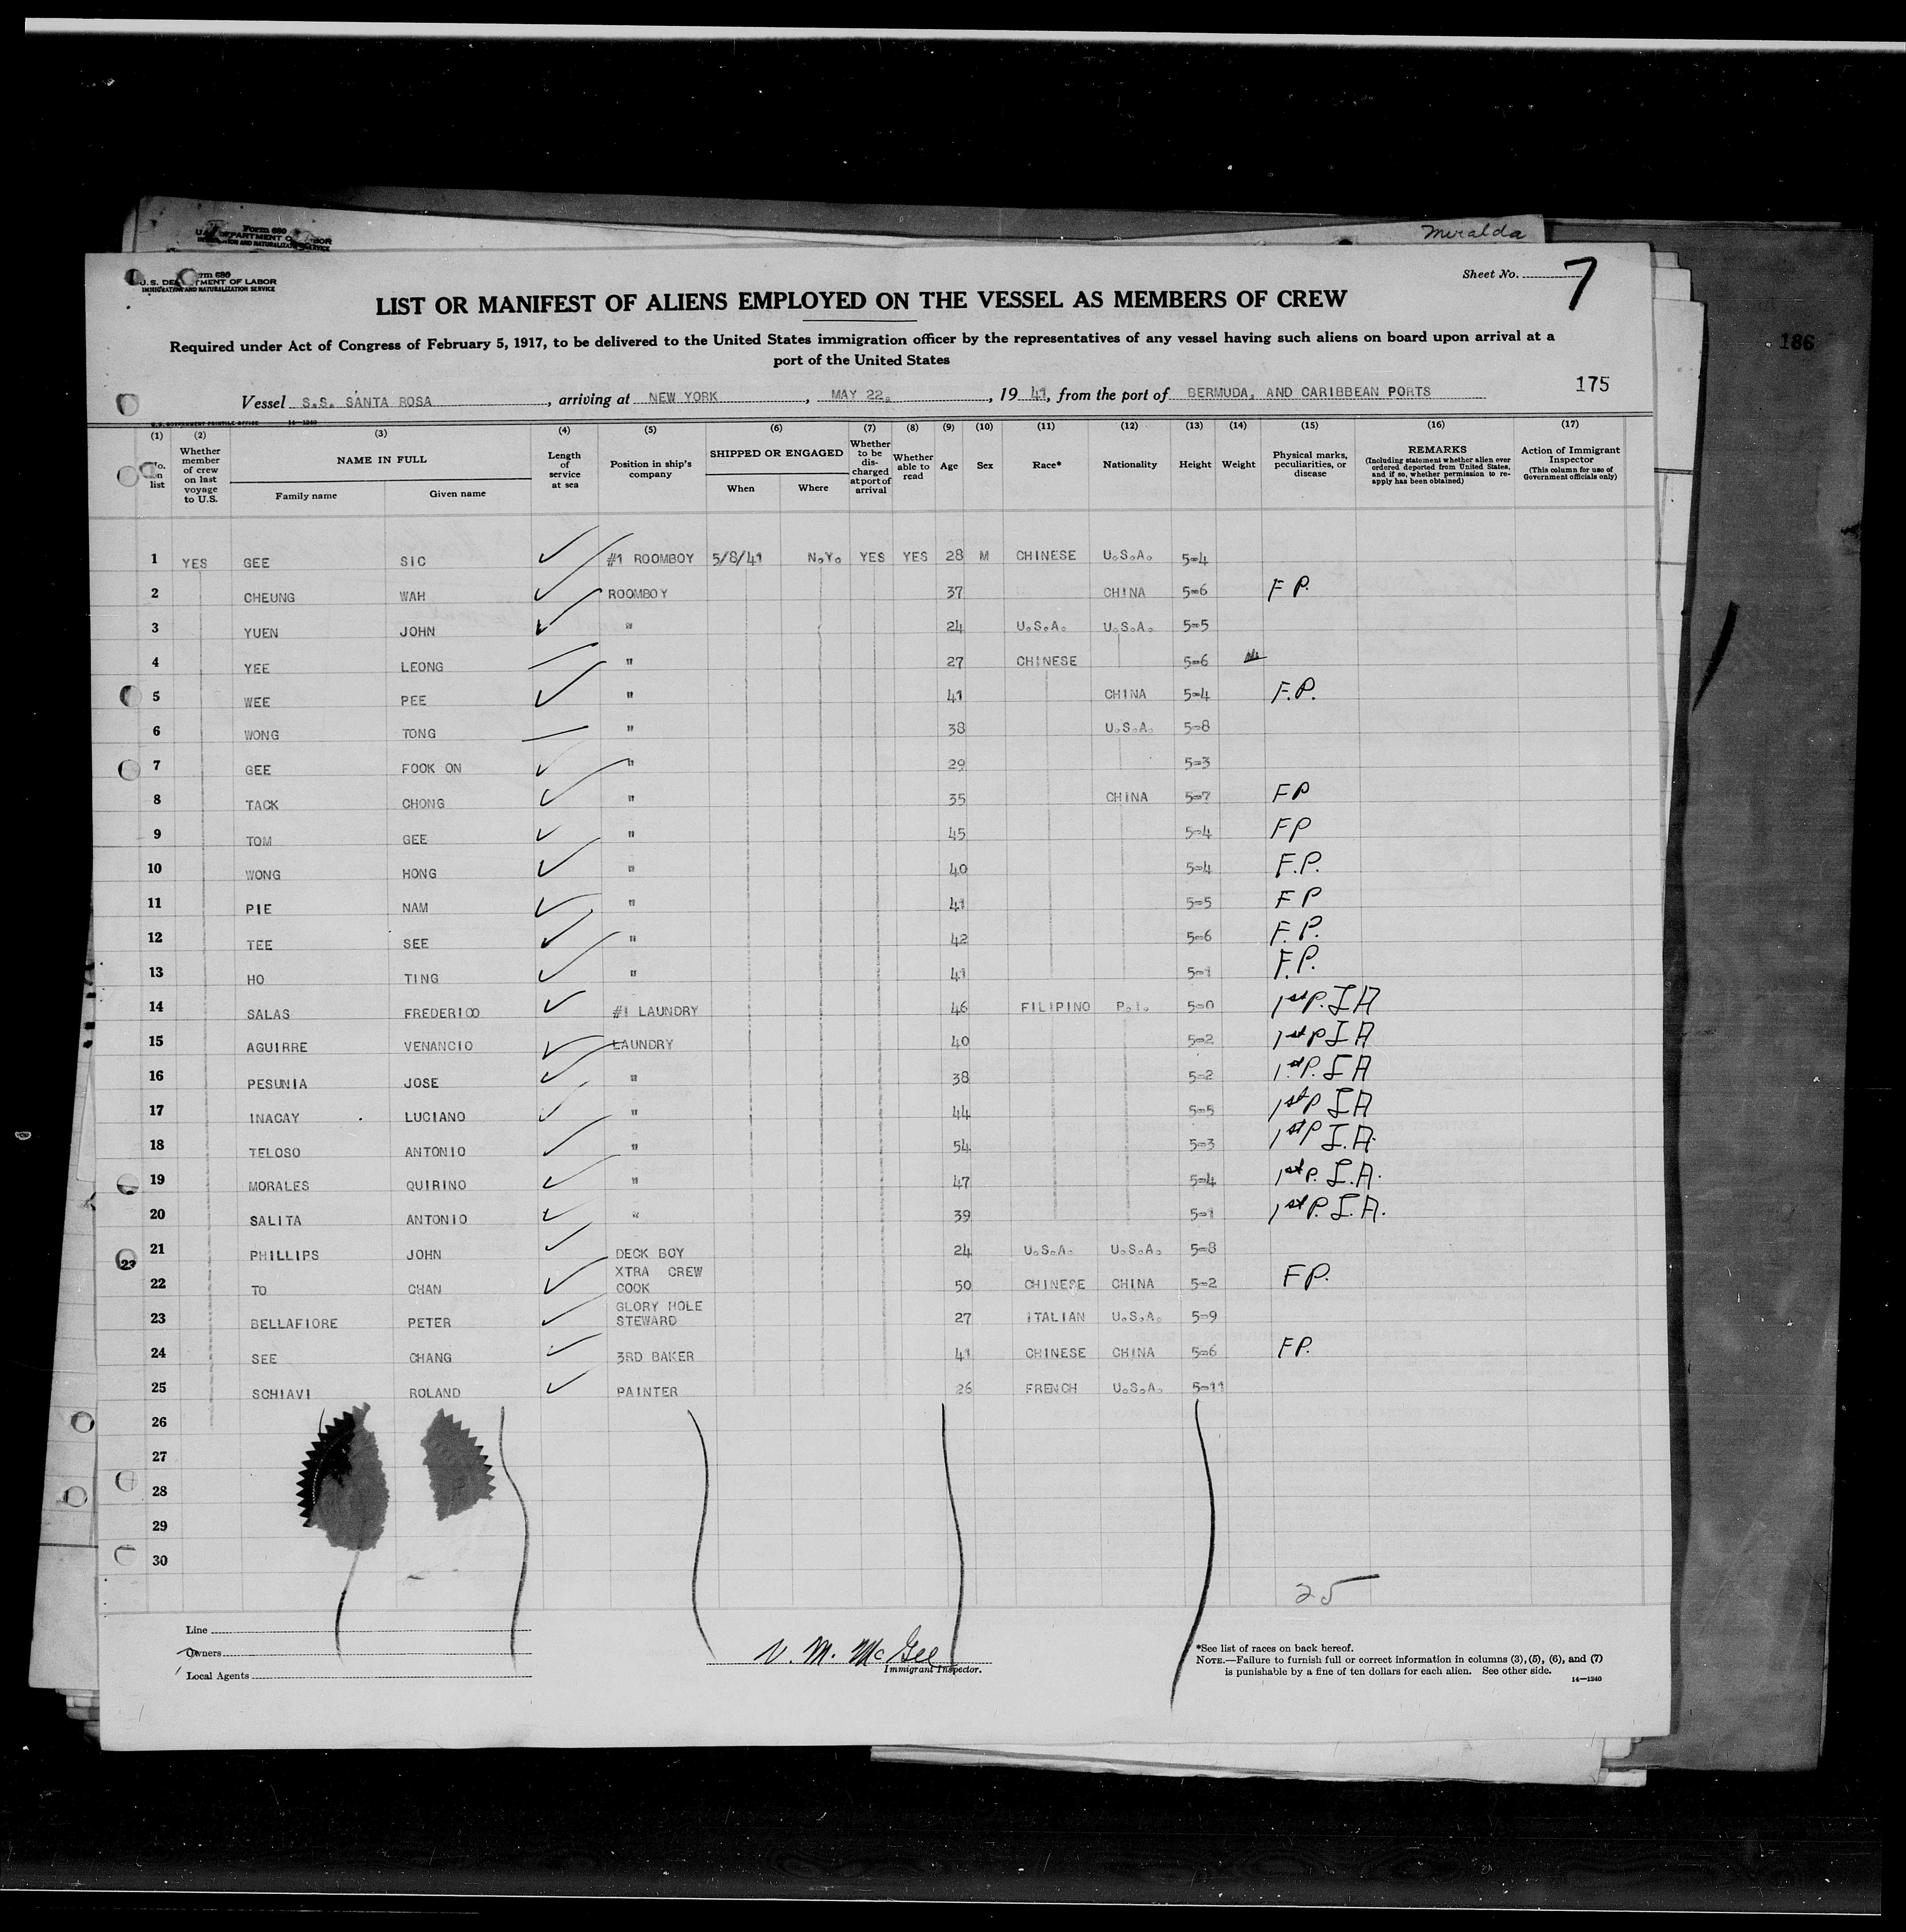 Form 680
Miralda
186
Form 680
U.S. DEPARTMENT OF LABOR
IMMIGRATION AND NATURALIZATION SERVICE
Sheet No. 7
LIST OR MANIFEST OF ALIENS EMPLOYED ON THE VESSEL AS MEMBERS OF CREW
Required under Act of Congress of February 5, 1917, to be delivered to the United States immigration officer by the representatives of any vessel having such aliens on board upon arrival at a
port of the United States
175
Vessel S.S. SANTA ROSA, arriving at NEW YORK, MAY 22, 1941, from the port of BERMUDA, AND CARIBBEAN PORTS
U.S. GOVERNMENT PRINTING OFFICE 14—1240
(1) (2) (3) (4) (5) (6) (7) (8) (9) (10) (11) (12) (13) (14) (15) (16) (17)
No. on list Whether member of crew on last voyage to U.S. NAME IN FULL Family name Given name Length of service at sea Position in ship's company SHIPPED OR ENGAGED When Where Whether to be discharged at port of arrival Whether able to read Age Sex Race* Nationality Height Weight Physical marks, peculiarities, or disease REMARKS (Including statement whether alien ever ordered deported from United States, and if so, whether permission to re-apply has been obtained) Action of Immigrant Inspector (This column for use of Government officials only)
1 YES GEE SIC #1 ROOMBOY 5/8/41 N.Y. YES YES 28 M CHINESE U.S.A. 5-4
2 CHEUNG WAH ROOMBOY 37 CHINA 5-6 F P.
3 YUEN JOHN " 24 U.S.A. U.S.A. 5-5
4 YEE LEONG " 27 CHINESE 5-6
5 WEE PEE " 41 CHINA 5-4 F.P.
6 WONG TONG " 38 U.S.A. 5-8
7 GEE FOOK ON " 29 5-3
8 TACK CHONG " 35 CHINA 5-7 FP
9 TOM GEE " 45 5-4 FP
10 WONG HONG " 40 5-4 F.P.
11 PIE NAM " 41 5-5 F P
12 TEE SEE " 42 5-6 F.P.
13 HO TING " 41 5-1 F.P.
14 SALAS FREDERICO #1 LAUNDRY 46 FILIPINO P.I. 5-0 1st P. I A
15 AGUIRRE VENANCIO LAUNDRY 40 5-2 1st P I A
16 PESUNIA JOSE " 38 5-2 1st P. I A
17 INACAY LUCIANO " 44 5-5 1st P I A
18 TELOSO ANTONIO " 54 5-3 1st P I.A.
19 MORALES QUIRINO " 47 5-4 1st P. I.A.
20 SALITA ANTONIO " 39 5-1 1st P. I.A.
21 PHILLIPS JOHN DECK BOY 24 U.S.A. U.S.A. 5-8
22 TO CHAN XTRA CREW COOK 50 CHINESE CHINA 5-2 FP.
23 BELLAFIORE PETER GLORY HOLE STEWARD 27 ITALIAN U.S.A. 5-9
24 SEE CHANG 3RD BAKER 41 CHINESE CHINA 5-6 FP.
25 SCHIAVI ROLAND PAINTER 26 FRENCH U.S.A. 5-11
26
27
28
29
30
23
25
Line
Owners
Local Agents
V. M. McGee
Immigrant Inspector.
*See list of races on back hereof.
NOTE.—Failure to furnish full or correct information in columns (3), (5), (6), and (7)
is punishable by a fine of ten dollars for each alien. See other side.
14—1240